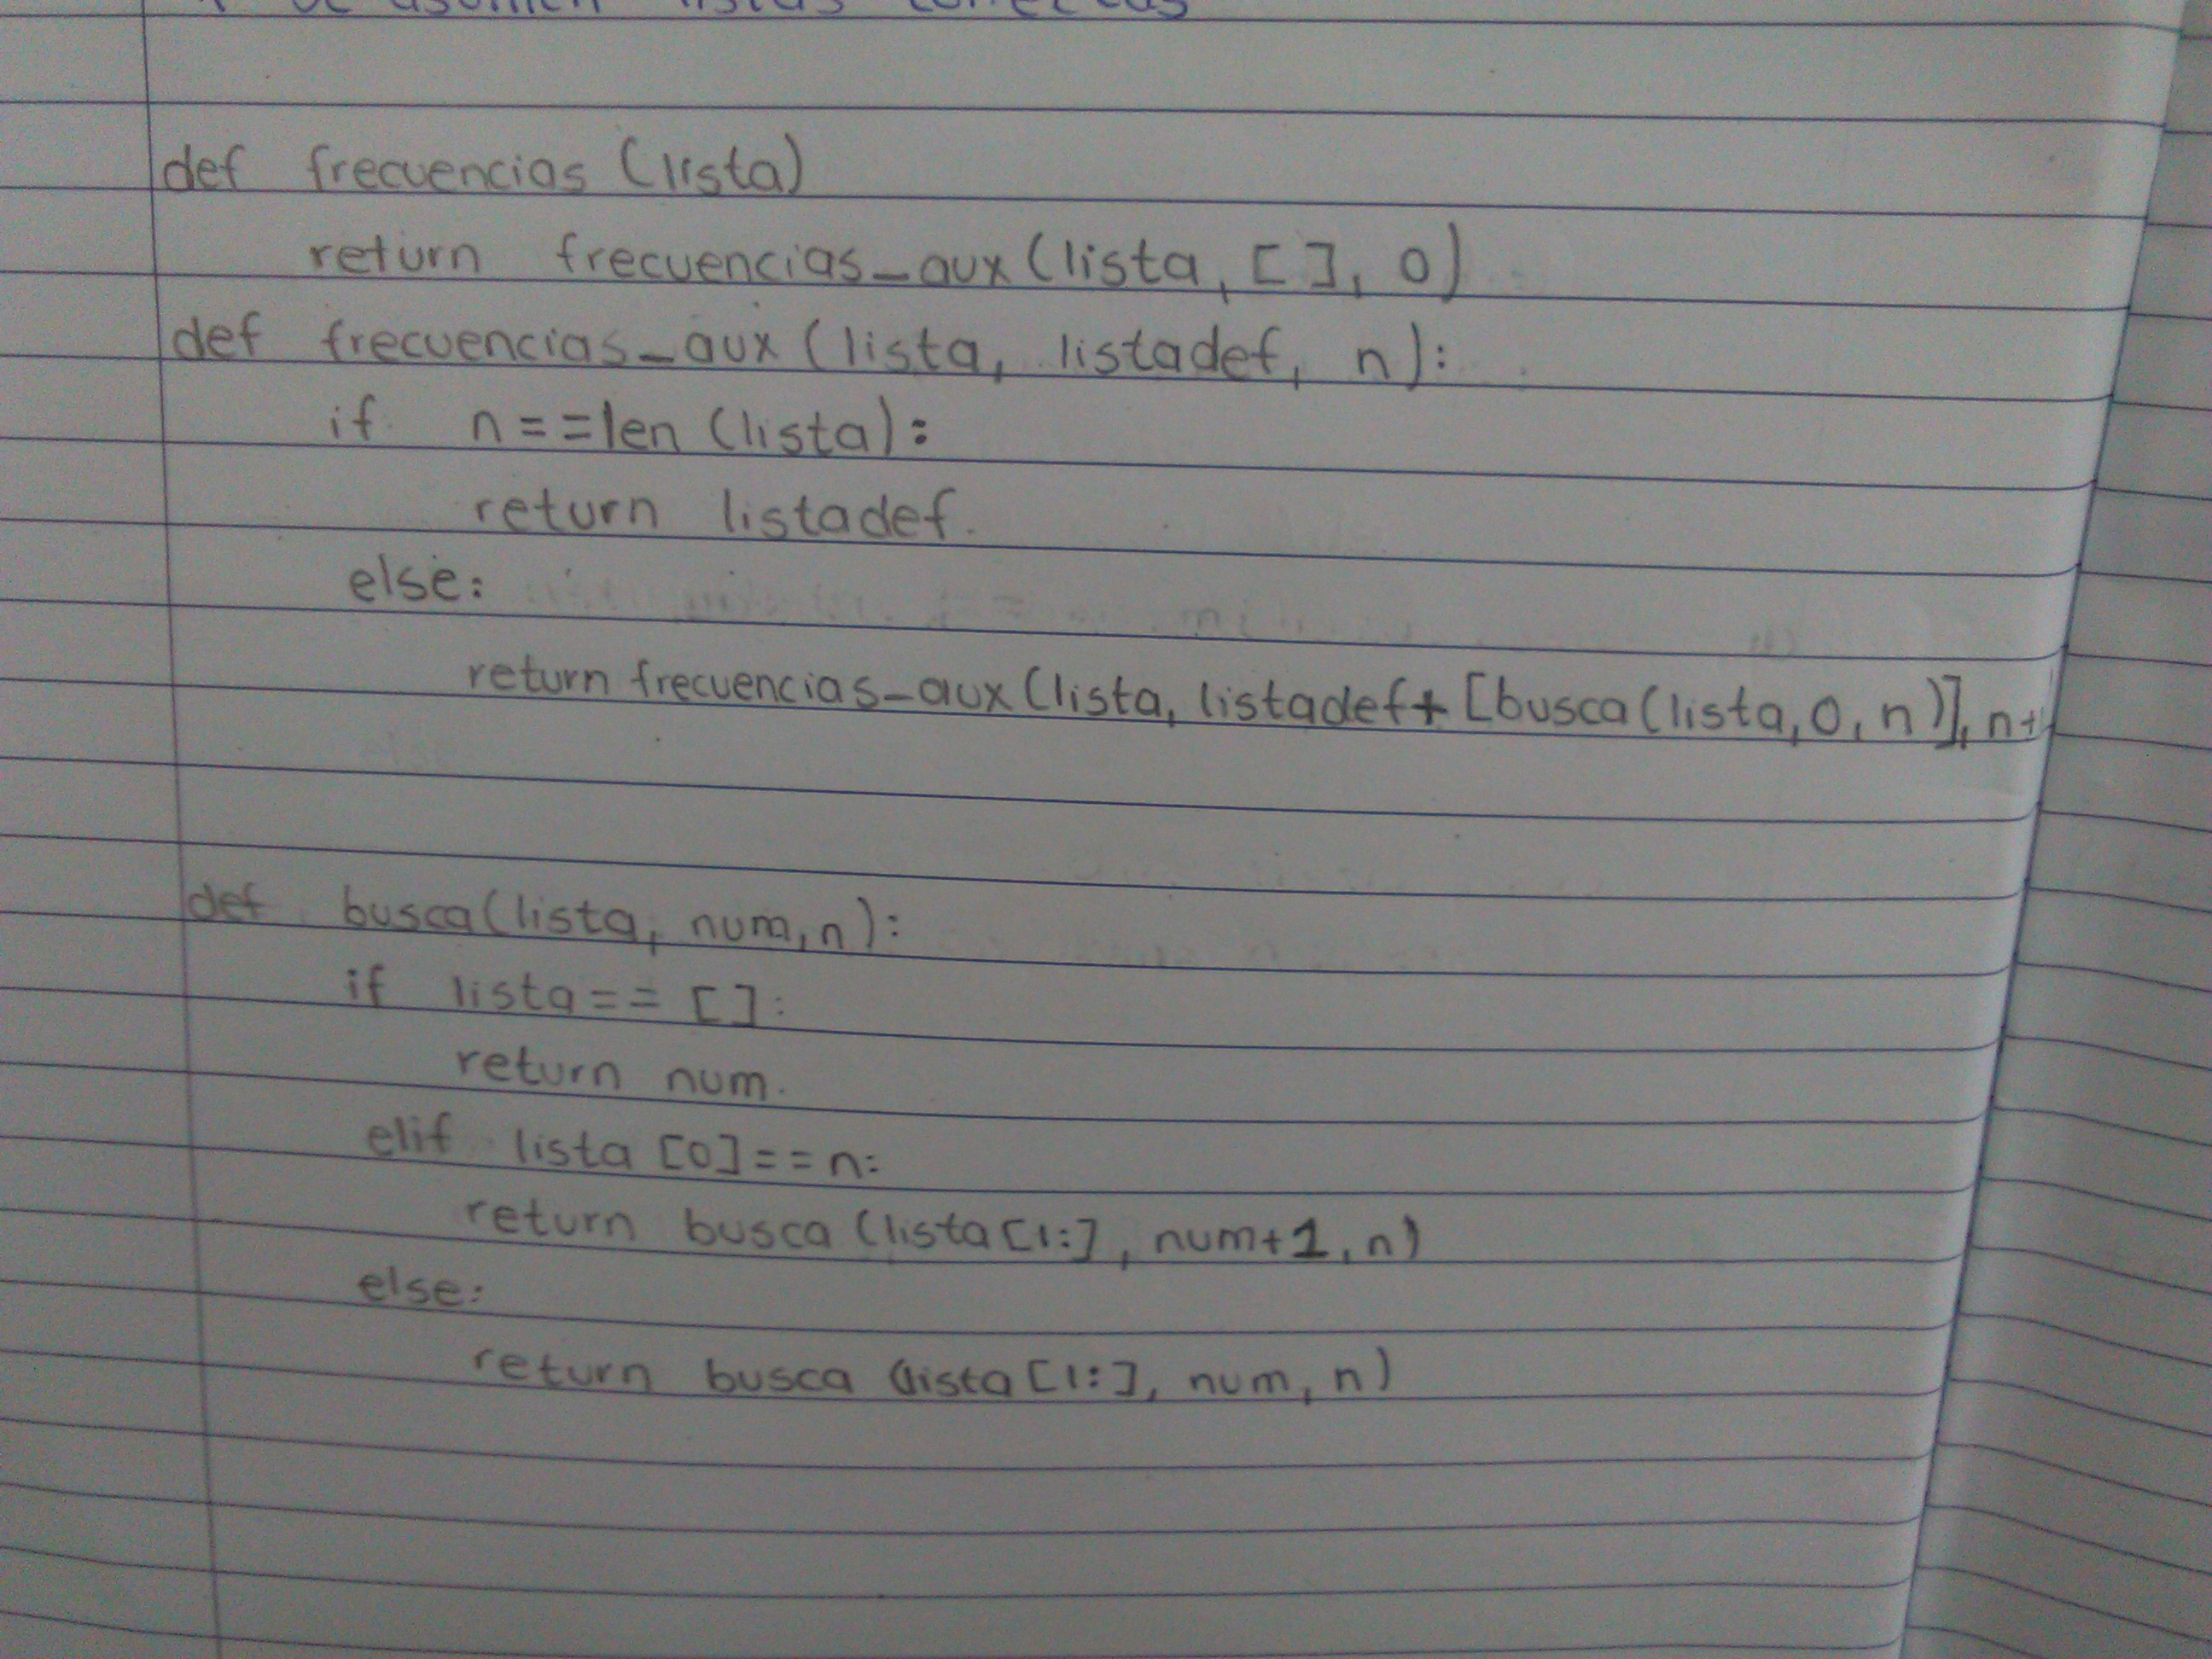 * Se asumen listas correctas
def frecuencias (lista)
return frecuencias_aux (lista, [], 0)
def frecuencias_aux (lista, listadef, n):
if n==len (lista):
return listadef.
else:
return frecuencias_aux (lista, listadef+ [busca (lista, 0, n)], n+1
def busca (lista, num, n):
if lista== []:
return num.
elif lista [0]==n:
return busca (lista [1:], num+1, n)
else:
return busca (lista [1:], num, n)